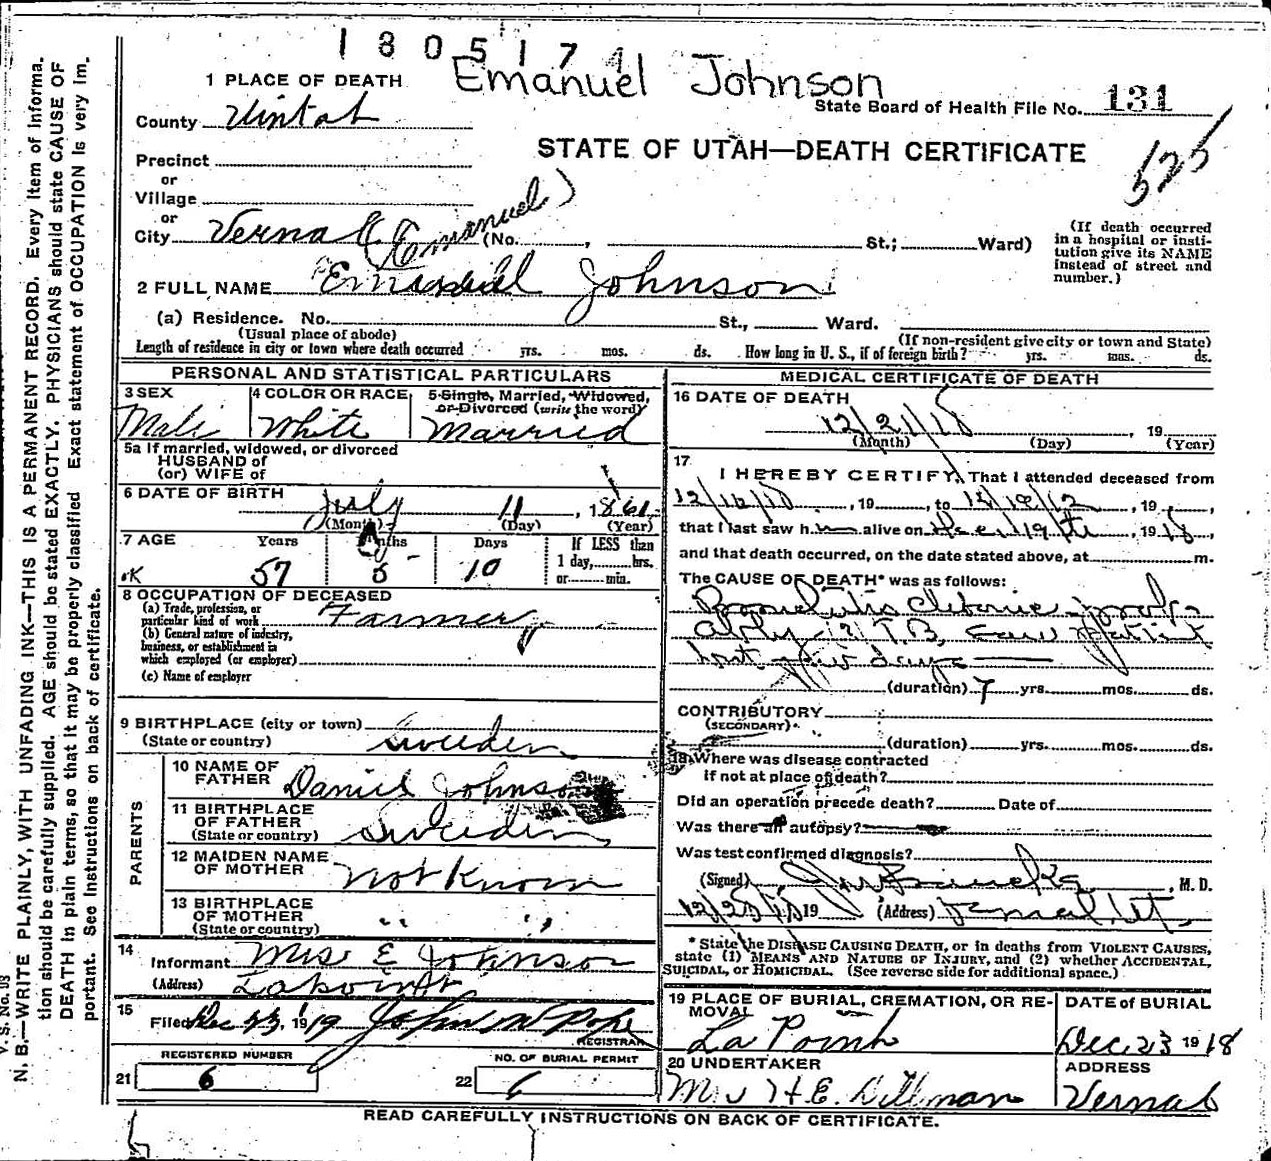 1805174
Emanuel Johnson
1 PLACE OF DEATH
State Board of Health File No. 131
County Uintah
STATE OF UTAH—DEATH CERTIFICATE
525
Precinct
or
Village
or
City Vernal (Emanuel) (No. , St.; Ward)
(If death occurred in a hospital or insti-
tution give its NAME instead of street and number.)
2 FULL NAME Johnson
(a) Residence. No. St., Ward.
(Usual place of abode)
(If non-resident give city or town and State)
Length of residence in city or town where death occurred yrs. mos. ds. How long in U. S., if of foreign birth? yrs. mos. ds.
PERSONAL AND STATISTICAL PARTICULARS
3 SEX
Male
4 COLOR OR RACE
White
5 Single, Married, Widowed,
or Divorced (write the word)
Married
5a If married, widowed, or divorced
HUSBAND of
(or) WIFE of
6 DATE OF BIRTH July 11, 1861
(Month) (Day) (Year)
7 AGE Years Months Days If LESS than
1 day, hrs.
or min.
OK 57 5 10
8 OCCUPATION OF DECEASED
(a) Trade, profession, or
particular kind of work Farmer
(b) General nature of industry,
business, or establishment in
which employed (or employer)
(c) Name of employer
9 BIRTHPLACE (city or town)
(State or country) Sweden
PARENTS
10 NAME OF
FATHER Daniel Johnson
11 BIRTHPLACE
OF FATHER
(State or country) Sweden
12 MAIDEN NAME
OF MOTHER Not Known
13 BIRTHPLACE
OF MOTHER
(State or country) " "
14
Informant Mrs E Johnson
(Address) Lapoint
15
Filed Dec 23, 1919 John N Pope
REGISTRAR
REGISTERED NUMBER
21 6
NO. OF BURIAL PERMIT
22 6
MEDICAL CERTIFICATE OF DEATH
16 DATE OF DEATH
12/21/18, 19
(Month) (Day) (Year)
17
I HEREBY CERTIFY, That I attended deceased from
, 19 , to , 19 ,
that I last saw h alive on Dec 19th, 1918,
and that death occurred, on the date stated above, at m.
The CAUSE OF DEATH* was as follows:
T.B. patient
days
(duration) 7 yrs. mos. ds.
CONTRIBUTORY
(SECONDARY)
(duration) yrs. mos. ds.
18 Where was disease contracted
if not at place of death?
Did an operation precede death? Date of
Was there an autopsy?
Was test confirmed diagnosis?
(Signed) , M. D.
19 (Address) Vernal, Ut.
* State the DISEASE CAUSING DEATH, or in deaths from VIOLENT CAUSES,
state (1) MEANS AND NATURE OF INJURY, and (2) whether ACCIDENTAL,
SUICIDAL, or HOMICIDAL. (See reverse side for additional space.)
19 PLACE OF BURIAL, CREMATION, OR RE-
MOVAL
La Point
DATE of BURIAL
Dec. 23 1918
20 UNDERTAKER
H E. Dillman
ADDRESS
Vernal
READ CAREFULLY INSTRUCTIONS ON BACK OF CERTIFICATE.
V. S. No.
N. B.—WRITE PLAINLY, WITH UNFADING INK—THIS IS A PERMANENT RECORD. Every item of informa-
tion should be carefully supplied. AGE should be stated EXACTLY. PHYSICIANS should state CAUSE OF
DEATH in plain terms, so that it may be properly classified. Exact statement of OCCUPATION is very im-
portant. See instructions on back of certificate.